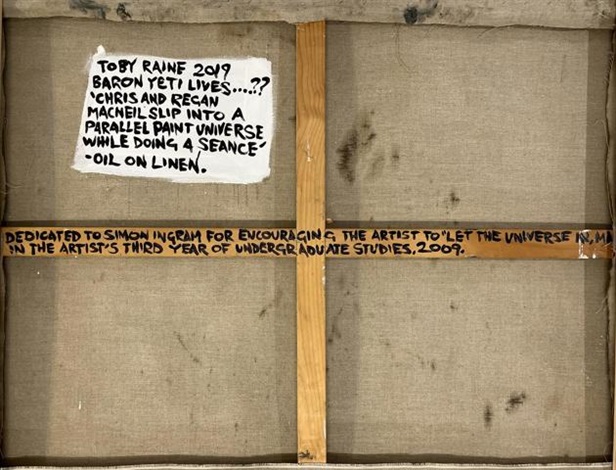 TOBY RAINE 2019
BARON YETI LIVES....??
'CHRIS AND REGAN
MACNEIL SLIP INTO A
PARALLEL PAINT UNIVERSE
WHILE DOING A SEANCE'
-OIL ON LINEN.
DEDICATED TO SIMON INGRAM FOR ENCOURAGING THE ARTIST TO "LET THE UNIVERSE IN, MA
IN THE ARTIST'S THIRD YEAR OF UNDERGRADUATE STUDIES, 2009.